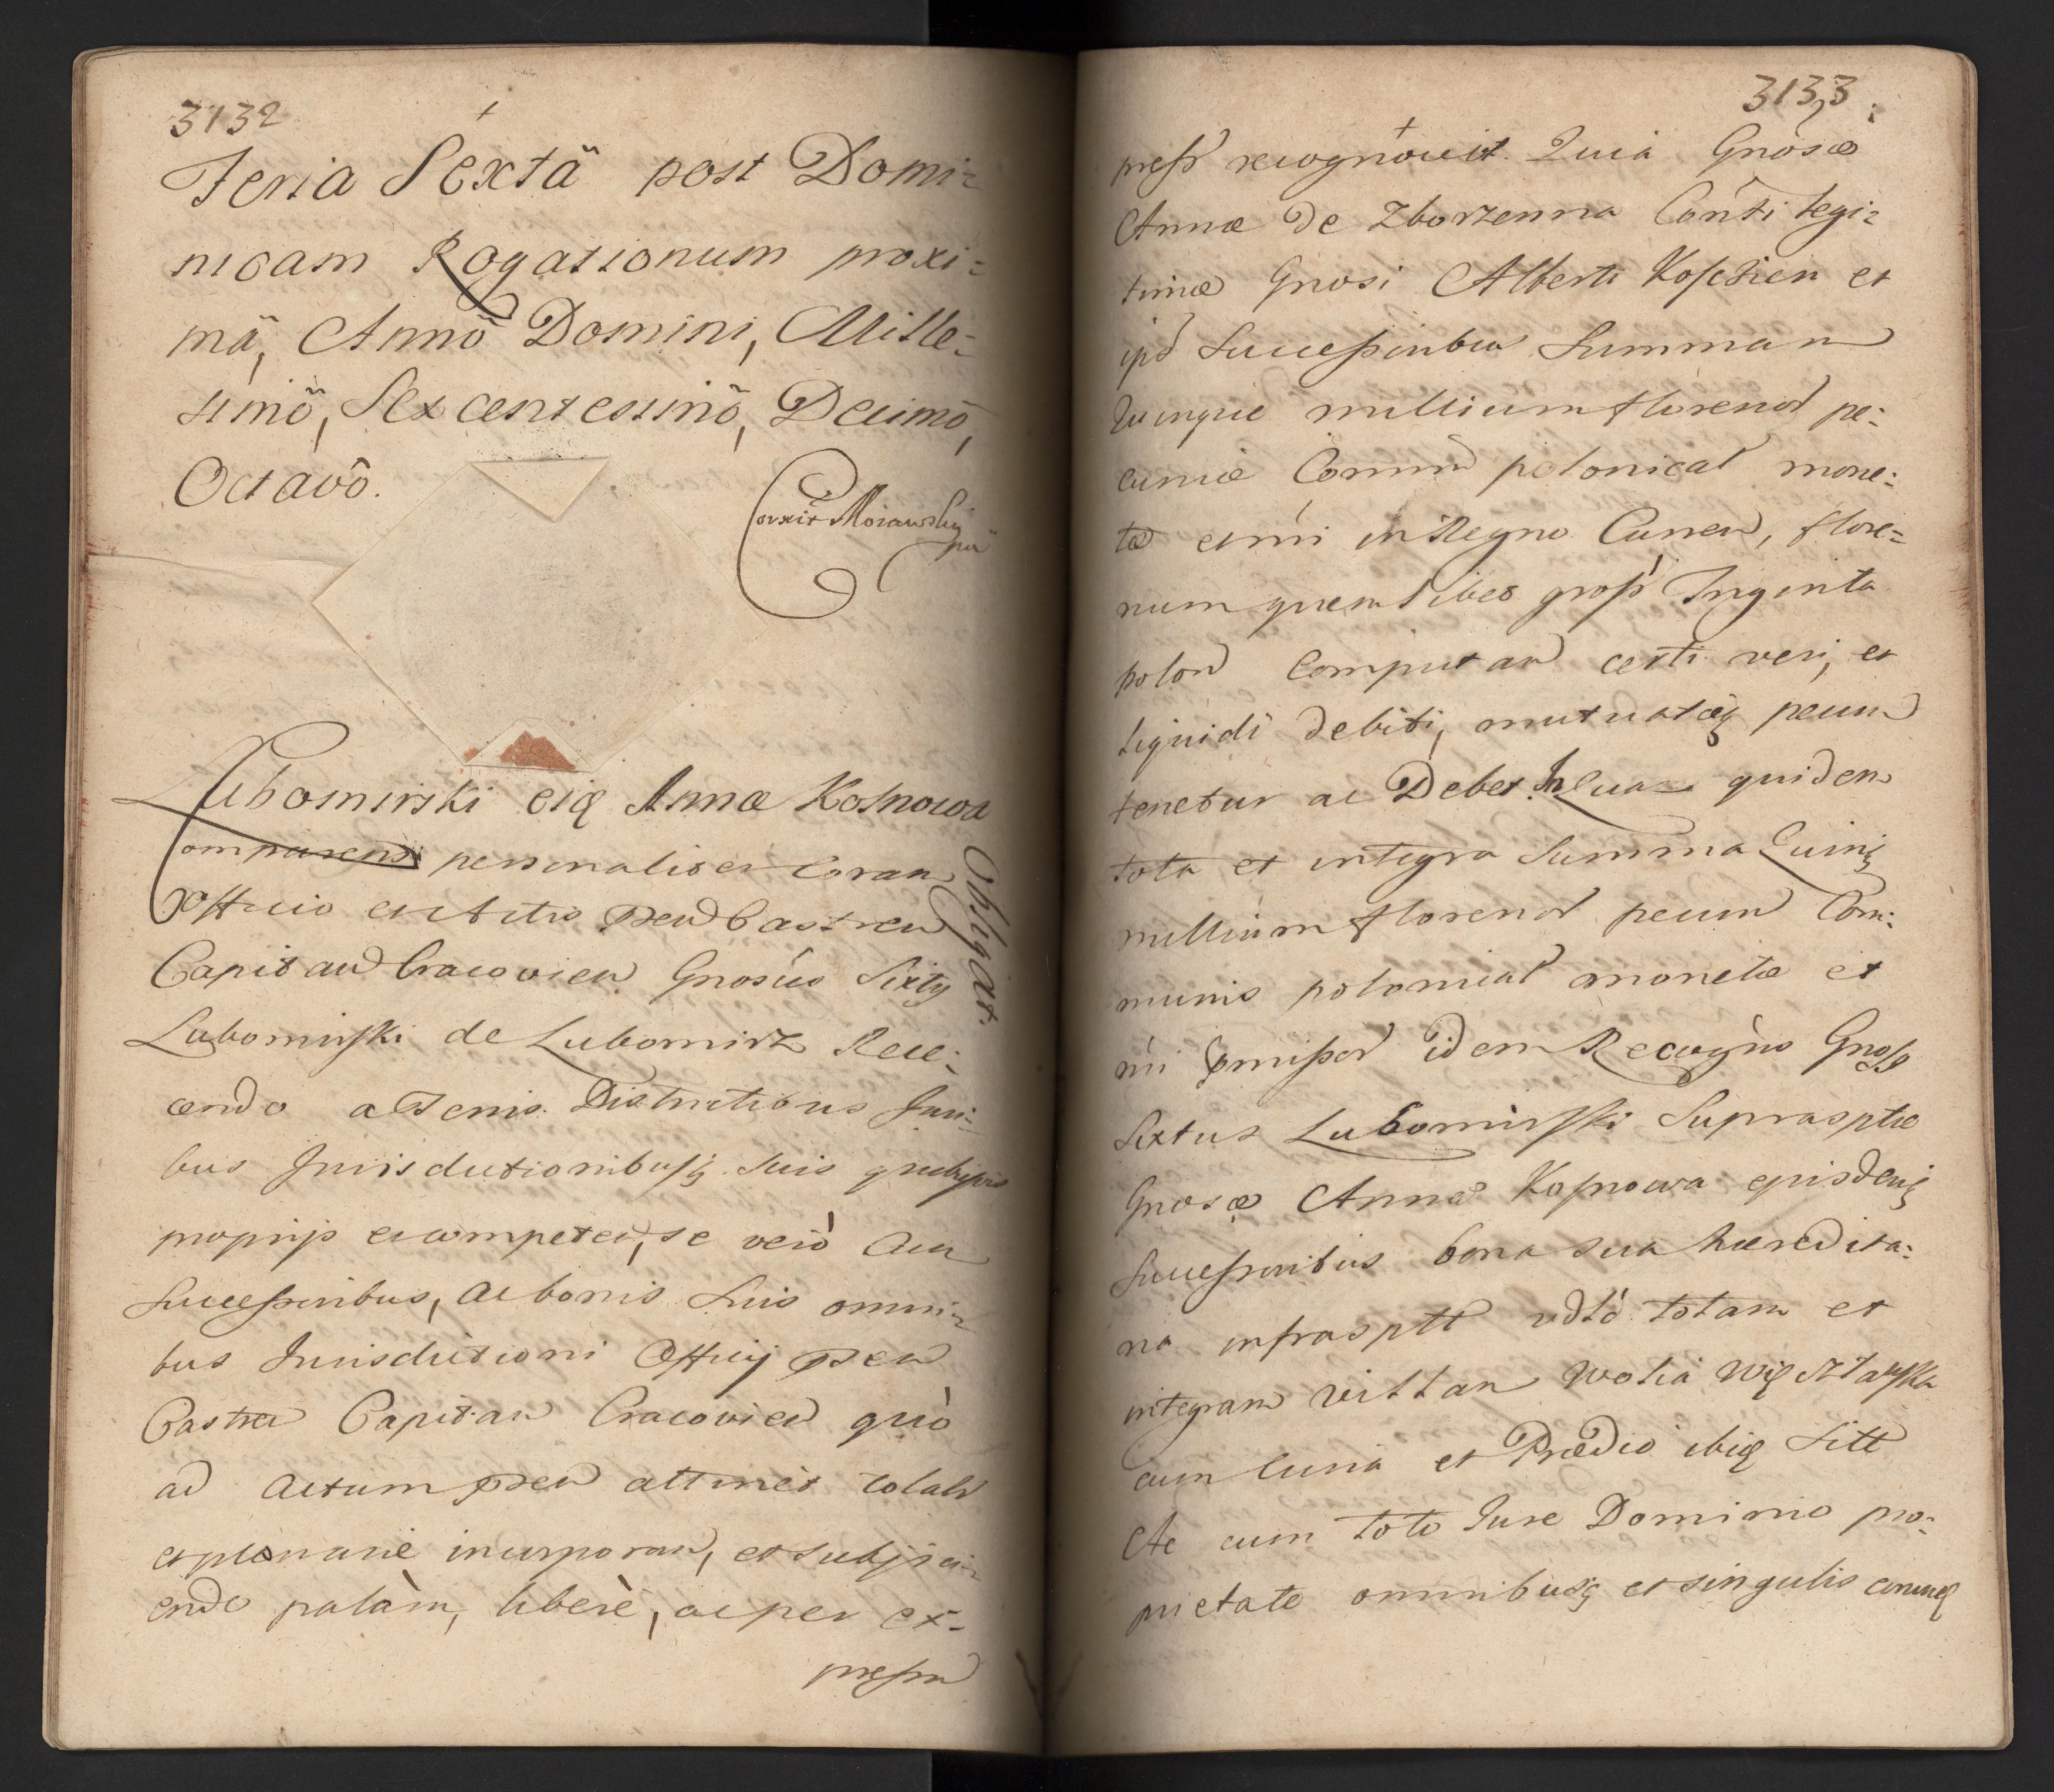 3132
Feria Sextâ post Domi=
nicam Rogationum proxi=
mâ, Annô Domini, Mille=
simô, Sexcentesimô, Decimô,
Octavô.
Correxit Morawsky
Lubomirski eiq Annæ Kosnowa
Comparens personaliter coram
Officio et Actis pen Castren
Capitan Cracovien Gnosus Sixtq
Lubomirski de Lubomirz Rece=
cendo a Tenis Districtibus Juri=
bus Jurisdictionibusq suis quibusvis
proprijs et competen, se verò cum
Successoribus, ac bonis suis omni=
bus Jurisdictioni Officij pren
Castren Capitan Cracovien quò
ad Actum pren attinet totalr
et plenarie incorporan, et subijci=
endo palàm, liberè, ac per ex=
pressu
Obligat.
3133
press recognovit. Quia Gnosæ
Annæ de Zborzenna Consti legi=
timæ Gnosi Alberti Kosszien et
ips Successoribus Summam
Quinque millium florenor pe=
cuniæ Commun polonical mone=
tæ et nri in Regno Curren, flore=
num quemlibet gross Triginta
polon Computan certi veri, et
liquidi debiti, mutuatæq pecun
tenetur ac Debet. In Qua quidem
tota et integra Summa Quinq
millium florenor pecun Com=
munis polonical monetæ et
nri pmissor idem Recogns Gnosq
Sixtus Lubomirski Suprasptæ
Gnosæ Annæ Kosnowa episdemq
Successoribus bona sua hæredita=
ria infrasptt vdtó totam et
integram villam Wolia Więcztarska
cum Curia et Prædio ibiq Sitt
Ac cum toto Jure Dominio pro=
prietate omnibusq et singulis eorumq